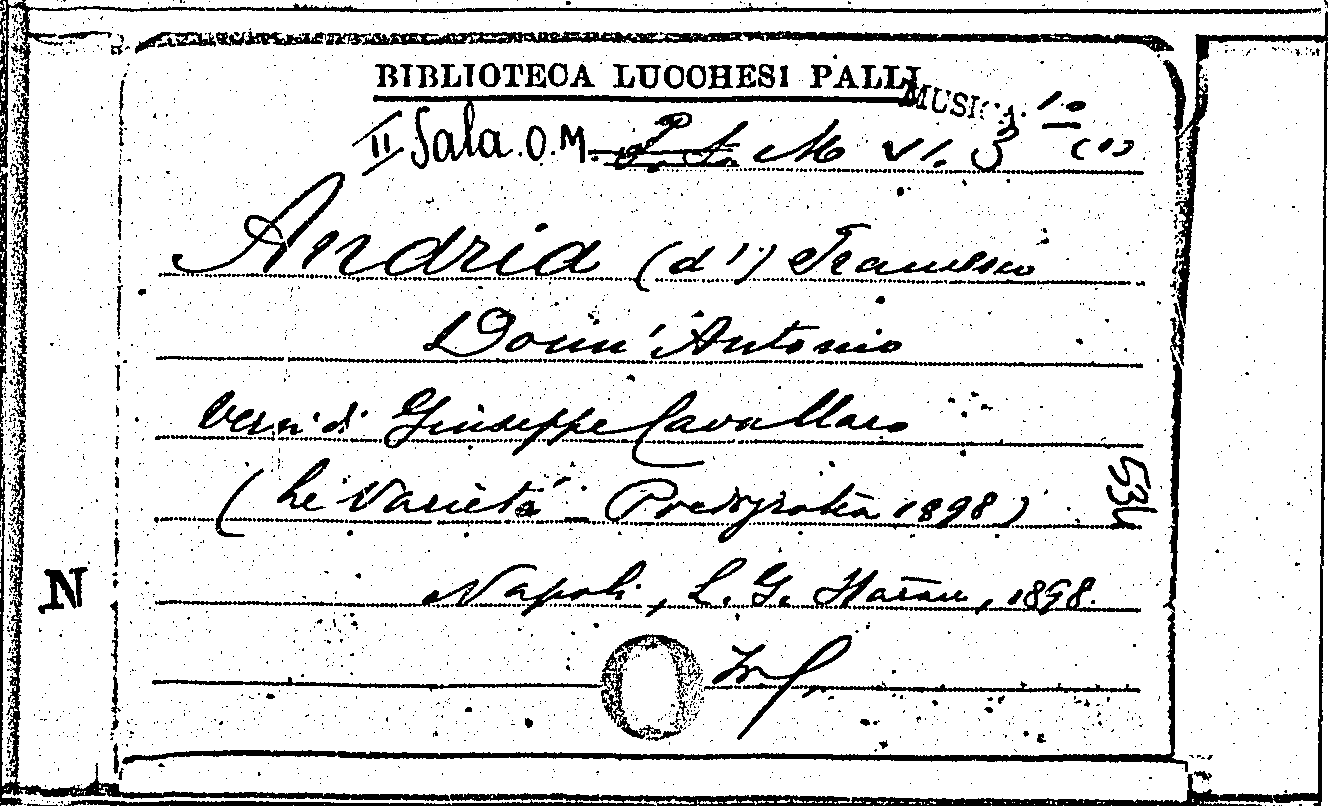 BIBLIOTECA LUCCHESI PALLI
MUSICA. 1º
II Sala. O. M. M VI. 3 (1)
Andria (d') Francesco
Donn' Antonio
Versi di Giuseppe Cavallaro
(Le Varietà - Piedigrotta 1898)
534
Napoli, L. G. 1898.
N